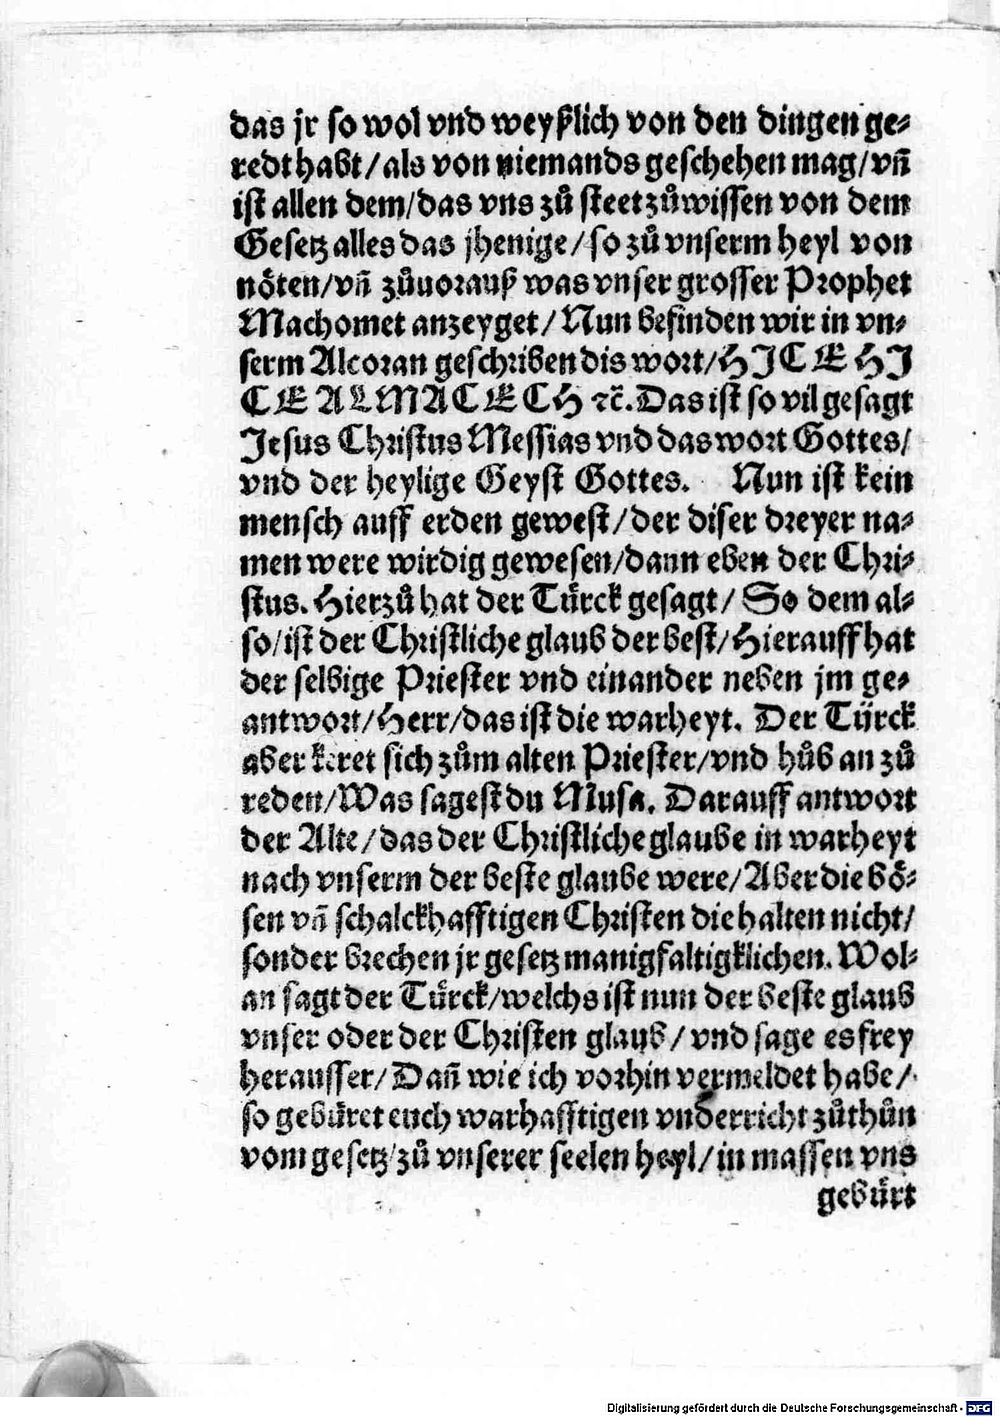 das jr so wol vnd weyßlich von den dingen ge⸗
redt habt/als von niemands geschehen mag/vñ
ist allen dem/das vns zů steet zůwissen von dem
Gesetz alles das jhenige/so zů vnserm heyl von
nöten/vñ zůuorauß was vnser grosser Prophet
Machomet anzeyget/Nun befinden wir in vn⸗
serm Alcoran geschriben dis wort/HJCE HJ
CE ALMACECH ꝛc̃. Das ist so vil gesagt
Jesus Christus Messias vnd das wort Gottes/
vnd der heylige Geyst Gottes. Nun ist kein
mensch auff erden gewest/der diser dreyer na⸗
men were wirdig gewesen/dann eben der Chri⸗
stus. Hierzů hat der Türck gesagt/ So dem al⸗
so/ist der Christliche glaub der best/Hierauff hat
der selbige Priester vnd einander neben jm ge⸗
antwort/Herr/das ist die warheyt. Der Türck
aber keret sich zům alten Priester/vnd hůb an zů
reden/Was sagest du Musa. Darauff antwort
der Alte/das der Christliche glaube in warheyt
nach vnserm der beste glaube were/Aber die bö⸗
sen vñ schalckhafftigen Christen die halten nicht/
sonder brechen jr gesetz manigfaltigklichen. Wol⸗
an sagt der Türck/welchs ist nun der beste glaub
vnser oder der Christen glaub/vnd sage es frey
herausser/Dañ wie ich vorhin vermeldet habe/
so gebüret euch warhafftigen vnderricht zůthůn
vom gesetz/zů vnserer seelen heyl/in massen vns
gebürt
Digitalisierung gefördert durch die Deutsche Forschungsgemeinschaft - DFG